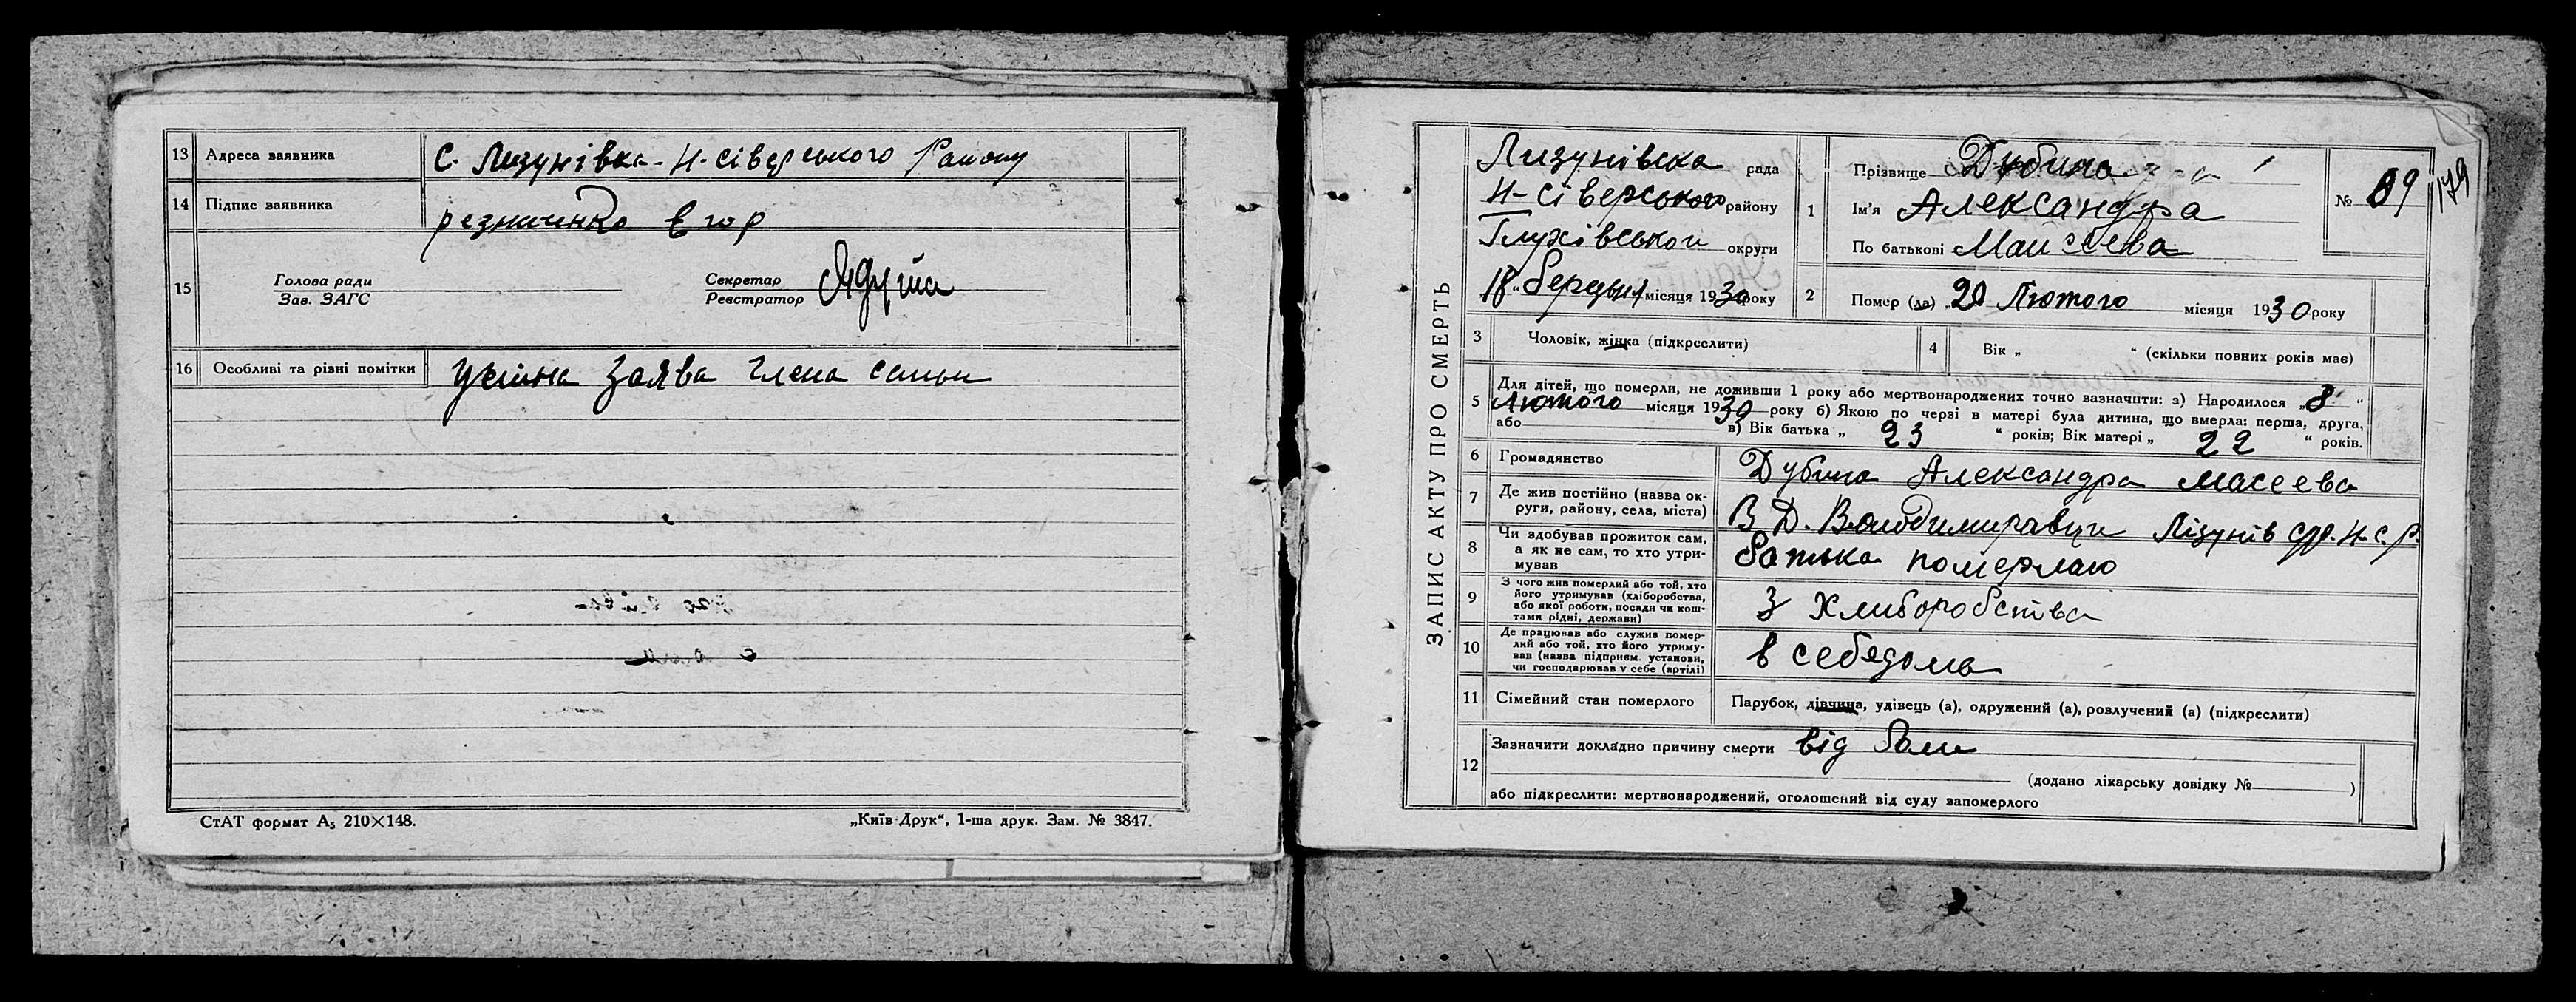 13 Адреса заявника С. Лизунівка - Н-сіверського Району
14 Підпис заявника резниченко Егор
15 Голова ради
Зав. ЗАГС
Секретар
Реєстратор
16 Особливі та різні помітки Усітна Заява члена семьи
СтАТ формат А5 210×148.
„Київ-Друк“, 1-ша друк. Зам. № 3847.
ЗАПИС АКТУ ПРО СМЕРТЬ
Лизунівска рада
Н-Сіверського району
Глухівськои округи
18 “ березня місяця 1930 року
1 Прізвище Дубина
Ім'я Александра
По батькові Маисеева
№ 89
179
2 Помер (ла) „ 20 Лютого місяця 1930 року
3 Чоловік, жінка (підкреслити)
4 Вік „ “ (скільки повних років має)
5 Для дітей, що померли, не доживши 1 року або мертвонароджених точно зазначити: а) Народилося „ 8 “
Лютого місяця 1930 року б) Якою по черзі в матері була дитина, що вмерла: перша, друга,
або в) Вік батька „ 23 “ років; Вік матері „ 22 “ років.
6 Громадянство Дубина Александра Масеева
7 Де жив постійно (назва ок-
руги, району, села, міста) В Д. Лізунів с/р. Н-С. Р.
8 Чи здобував прожиток сам,
а як не сам, то хто утри-
мував батька померлаю
9 З чого жив померлий або той, хто
його утримував (хліборобства,
або якої роботи, посади чи кош-
тами рідні, держави) З Хлиборобства
10 Де працював або служив помер-
лий або той, хто його утриму-
вав (назва підприєм. установи,
чи господарював у себе (артілі) в себядома
11 Сімейний стан померлого Парубок, дівчина, удівець (а), одружений (а), розлучений (а) (підкреслити)
12 Зазначити докладно причину смерти від
(додано лікарську довідку № )
або підкреслити: мертвонароджений, оголошений від суду запомерлого